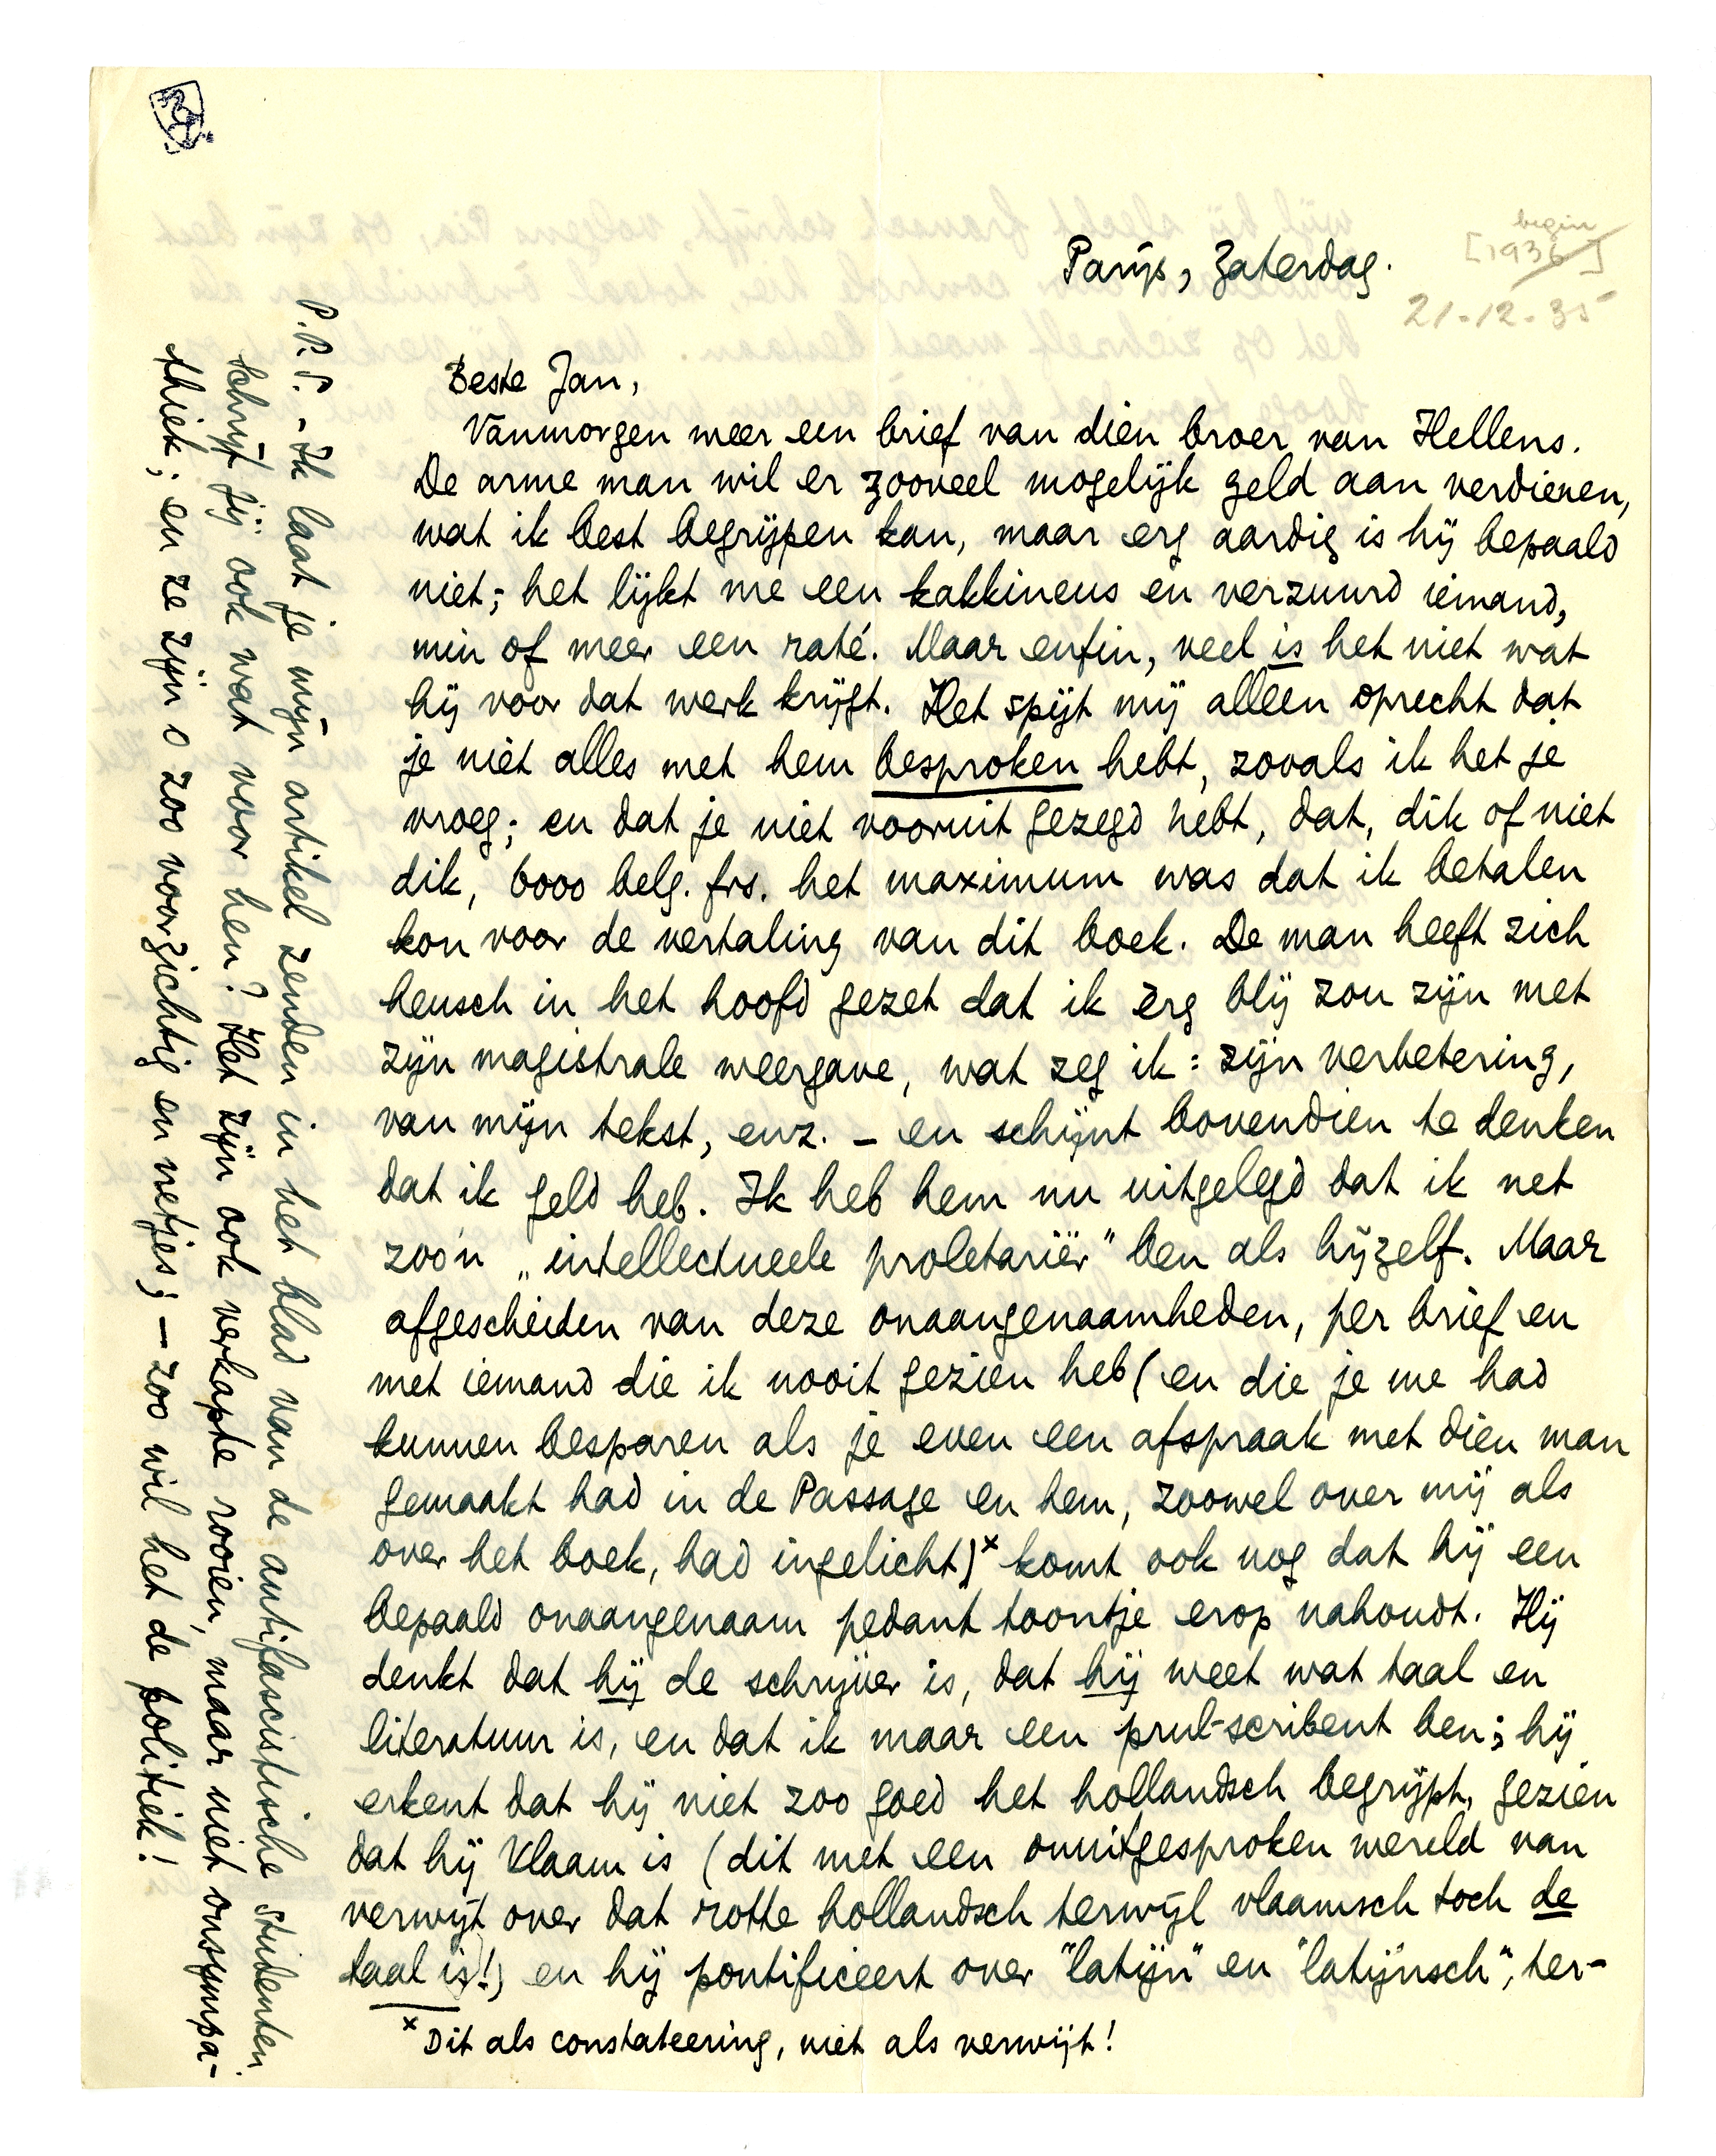 begin
[1936]
21-12-35
Parijs, Zaterdag.
Beste Jan,
Vanmorgen weer een brief van dien broer van Hellens.
De arme man wil er zooveel mogelijk geld aan verdienen,
wat ik best begrijpen kan, maar erg aardig is hij bepaald
niet; het lijkt me een kakkineus en verzuurd iemand,
min of meer een raté. Maar enfin, veel is het niet wat
hij voor dat werk krijgt. Het spijt mij alleen oprecht dat
je niet alles met hem besproken hebt, zooals ik het je
vroeg; en dat je niet vooruit gezegd hebt, dat, dik of niet
dik, 6000 belg. frs. het maximum was dat ik betalen
kon voor de vertaling van dit boek. De man heeft zich
heusch in het hoofd gezet dat ik erg blij zou zijn met
zijn magistrale weergave, wat zeg ik: zijn verbetering,
van mijn tekst, enz. – en schijnt bovendien te denken
dat ik geld heb. Ik heb hem nu uitgelegd dat ik net
zoo'n „intellectueele proletariër" ben als hijzelf. Maar
afgescheiden van deze onaangenaamheden, per brief en
met iemand die ik nooit gezien heb (en die je me had
kunnen besparen als je even een afspraak met dien man
gemaakt had in de Passage en hem, zoowel over mij als
over het boek, had ingelicht)x komt ook nog dat hij een
bepaald onaangenaam pedant toontje erop nahoudt. Hij
denkt dat hij de schrijver is, dat hij weet wat taal en
literatuur is, en dat ik maar een prul-scribent ben; hij
erkent dat hij niet zoo goed het hollandsch begrijpt, gezien
dat hij Vlaam is (dit met een onuitgesproken wereld van
verwijt over dat rotte hollandsch terwijl vlaamsch toch de
taal is!) en hij pontificeert over "latijn" en "latijnsch", ter-
x Dit als constateering, niet als verwijt!
P.P.S. – Ik laat je mijn artikel zenden in het blad van de antifascistische studenten.
Schrijf jij ook wat voor hen? Het zijn ook verkapte rooien, maar niet onsympa-
thiek; en ze zijn o zoo voorzichtig en netjes; – zoo wil het de politiek!